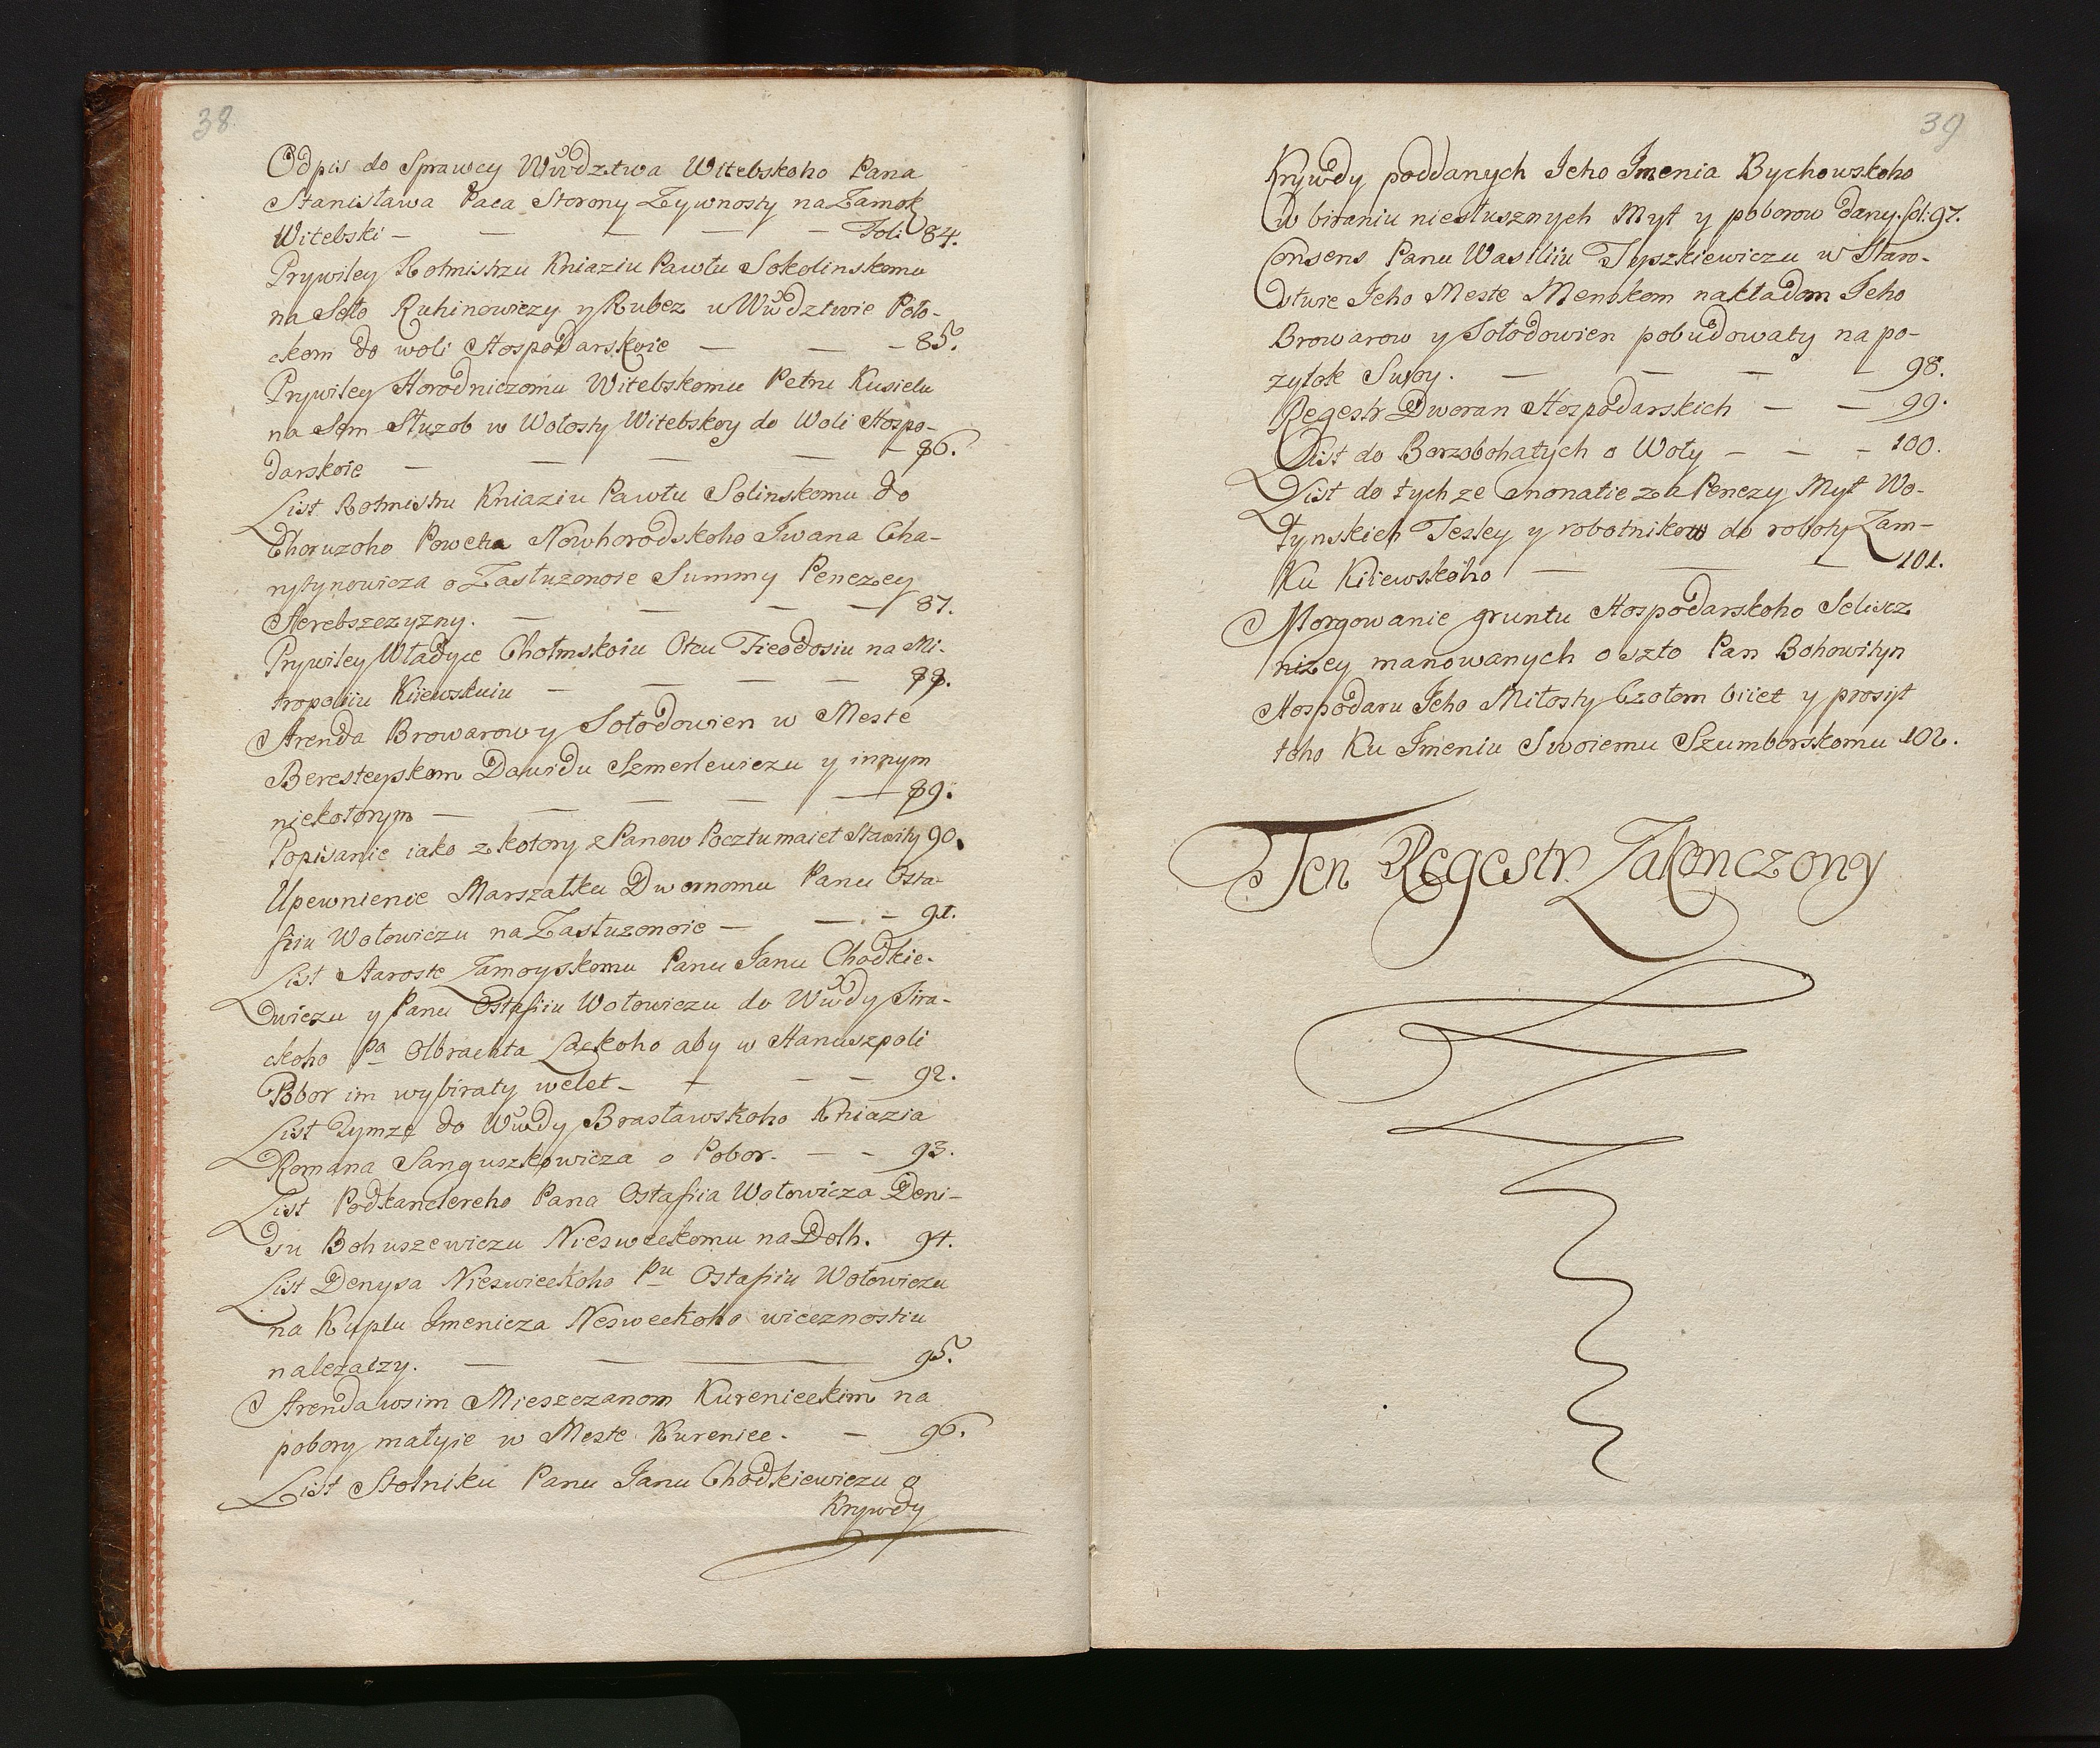 38.
Odpis do Sprawcy Wwdztwa Witebskoho Pana
Stanisława Paca Storony Zywnosty na Zamok
Witebski — — — — — Foli 84.
Prywiley Rotmistrzu Kniaziu Pawłu Sokolinskomu
na Seło Ruhinowiczy y Rubez w Wwdztwie Poło-
ckom do woli Hospodarskoie — — — 85.
Prywiley Horodniczomu Witebskomu Petru Kusielu
na Sem Słuzob w Wołosty Witebskoy do Woli Hospo-
darskoie — — — — — 86.
List Rotmistru Kniaziu Pawłu Solinskomu do
Choruzoho Powetu Nowhorodskoho Iwana Cha-
rytynowicza o Zasłuzonoie Summy Penezey
Serebszczyzny. — — — — 87.
Prywiley Władyce Chołmskoiu Otcu Fieodosiu na Mi-
tropoliiu Kiiewskuiu — — — — 88.
Arenda Browarow y Sołodowien w Meste
Beresteyskom Dawidu Szmerlewiczu y innym
niekotorym — — — — — 89.
Popisanie iako z kotory z Panow Pocztu maiet Stawity 90.
Upewnienie Marszałku Dwornomu Panu Osta-
fiiu Wołowiczu na Zasłuzonoie — — — 91.
List Staroste Zamoyskomu Panu Janu Chodkie-
wiczu y Panu Ostafiiu Wołowiczu do Wwdy Sira-
ckoho Pa Olbrachta Łaskoho aby w Hanuszpoli
Pobor im wybiraty welet — — — — 92.
List Tymze do Wwdy Brasławskoho Kniazia
Romana Sanguszkowicza o Pobor. — — 93.
List Podkanclereho Pana Ostafiia Wołowicza Deni-
su Bohuszewiczu Nieswickomu na Dolh. 94.
List Denysa Nieswieckoho Pu Ostafiiu Wołowiczu
na Kuplu Imenicza Nesweckoho wiecznostiu
nalezaczy. — — — 95.
Arenda wsim Mieszczanom Kurenieckim na
pobory małyie w Meste Kureniec. — 96.
List Stolniku Panu Janu Chodkiewiczu o
Krywdy
39
Krywdy poddanych Jeho Imenia Bychowskoho
w biraniu niesłusznych Myt y poborow dany. fol: 97.
Consens Panu Wasiliiu Tyszkiewiczu w Staro-
stwie Jeho Meste Menskom nakładom Jeho
Browarow y Sołodowien pobudowaty na po-
zytok Swoy. — — — — 98.
Regestr Dworan Hospodarskich — — 99.
List do Borzobohatych o Woły — — — 100.
List do tych ze Monatie za Penezy Myt Wo-
łynskich Tesley y robotnikow do roboty Zam-
Ku Kiiewskoho — — — 101.
Morgowanie gruntu Hospodarskoho Selisz
nizey manowanych o szto Pan Bohowityn
Hospodaru Jeho Miłosty Czołom biiet y prosyt
toho Ku Imeniu Swoiemu Szumborskomu 102.
Ten Regestr Zakonczony